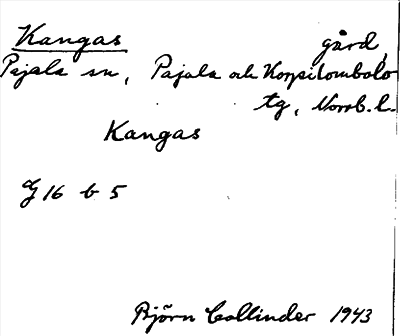 Kangas gård,
Pajala sn, Pajala och Korpilombolo
tg, Norrb. l.
Kangas
G 16 b 5
Björn Collinder 1943